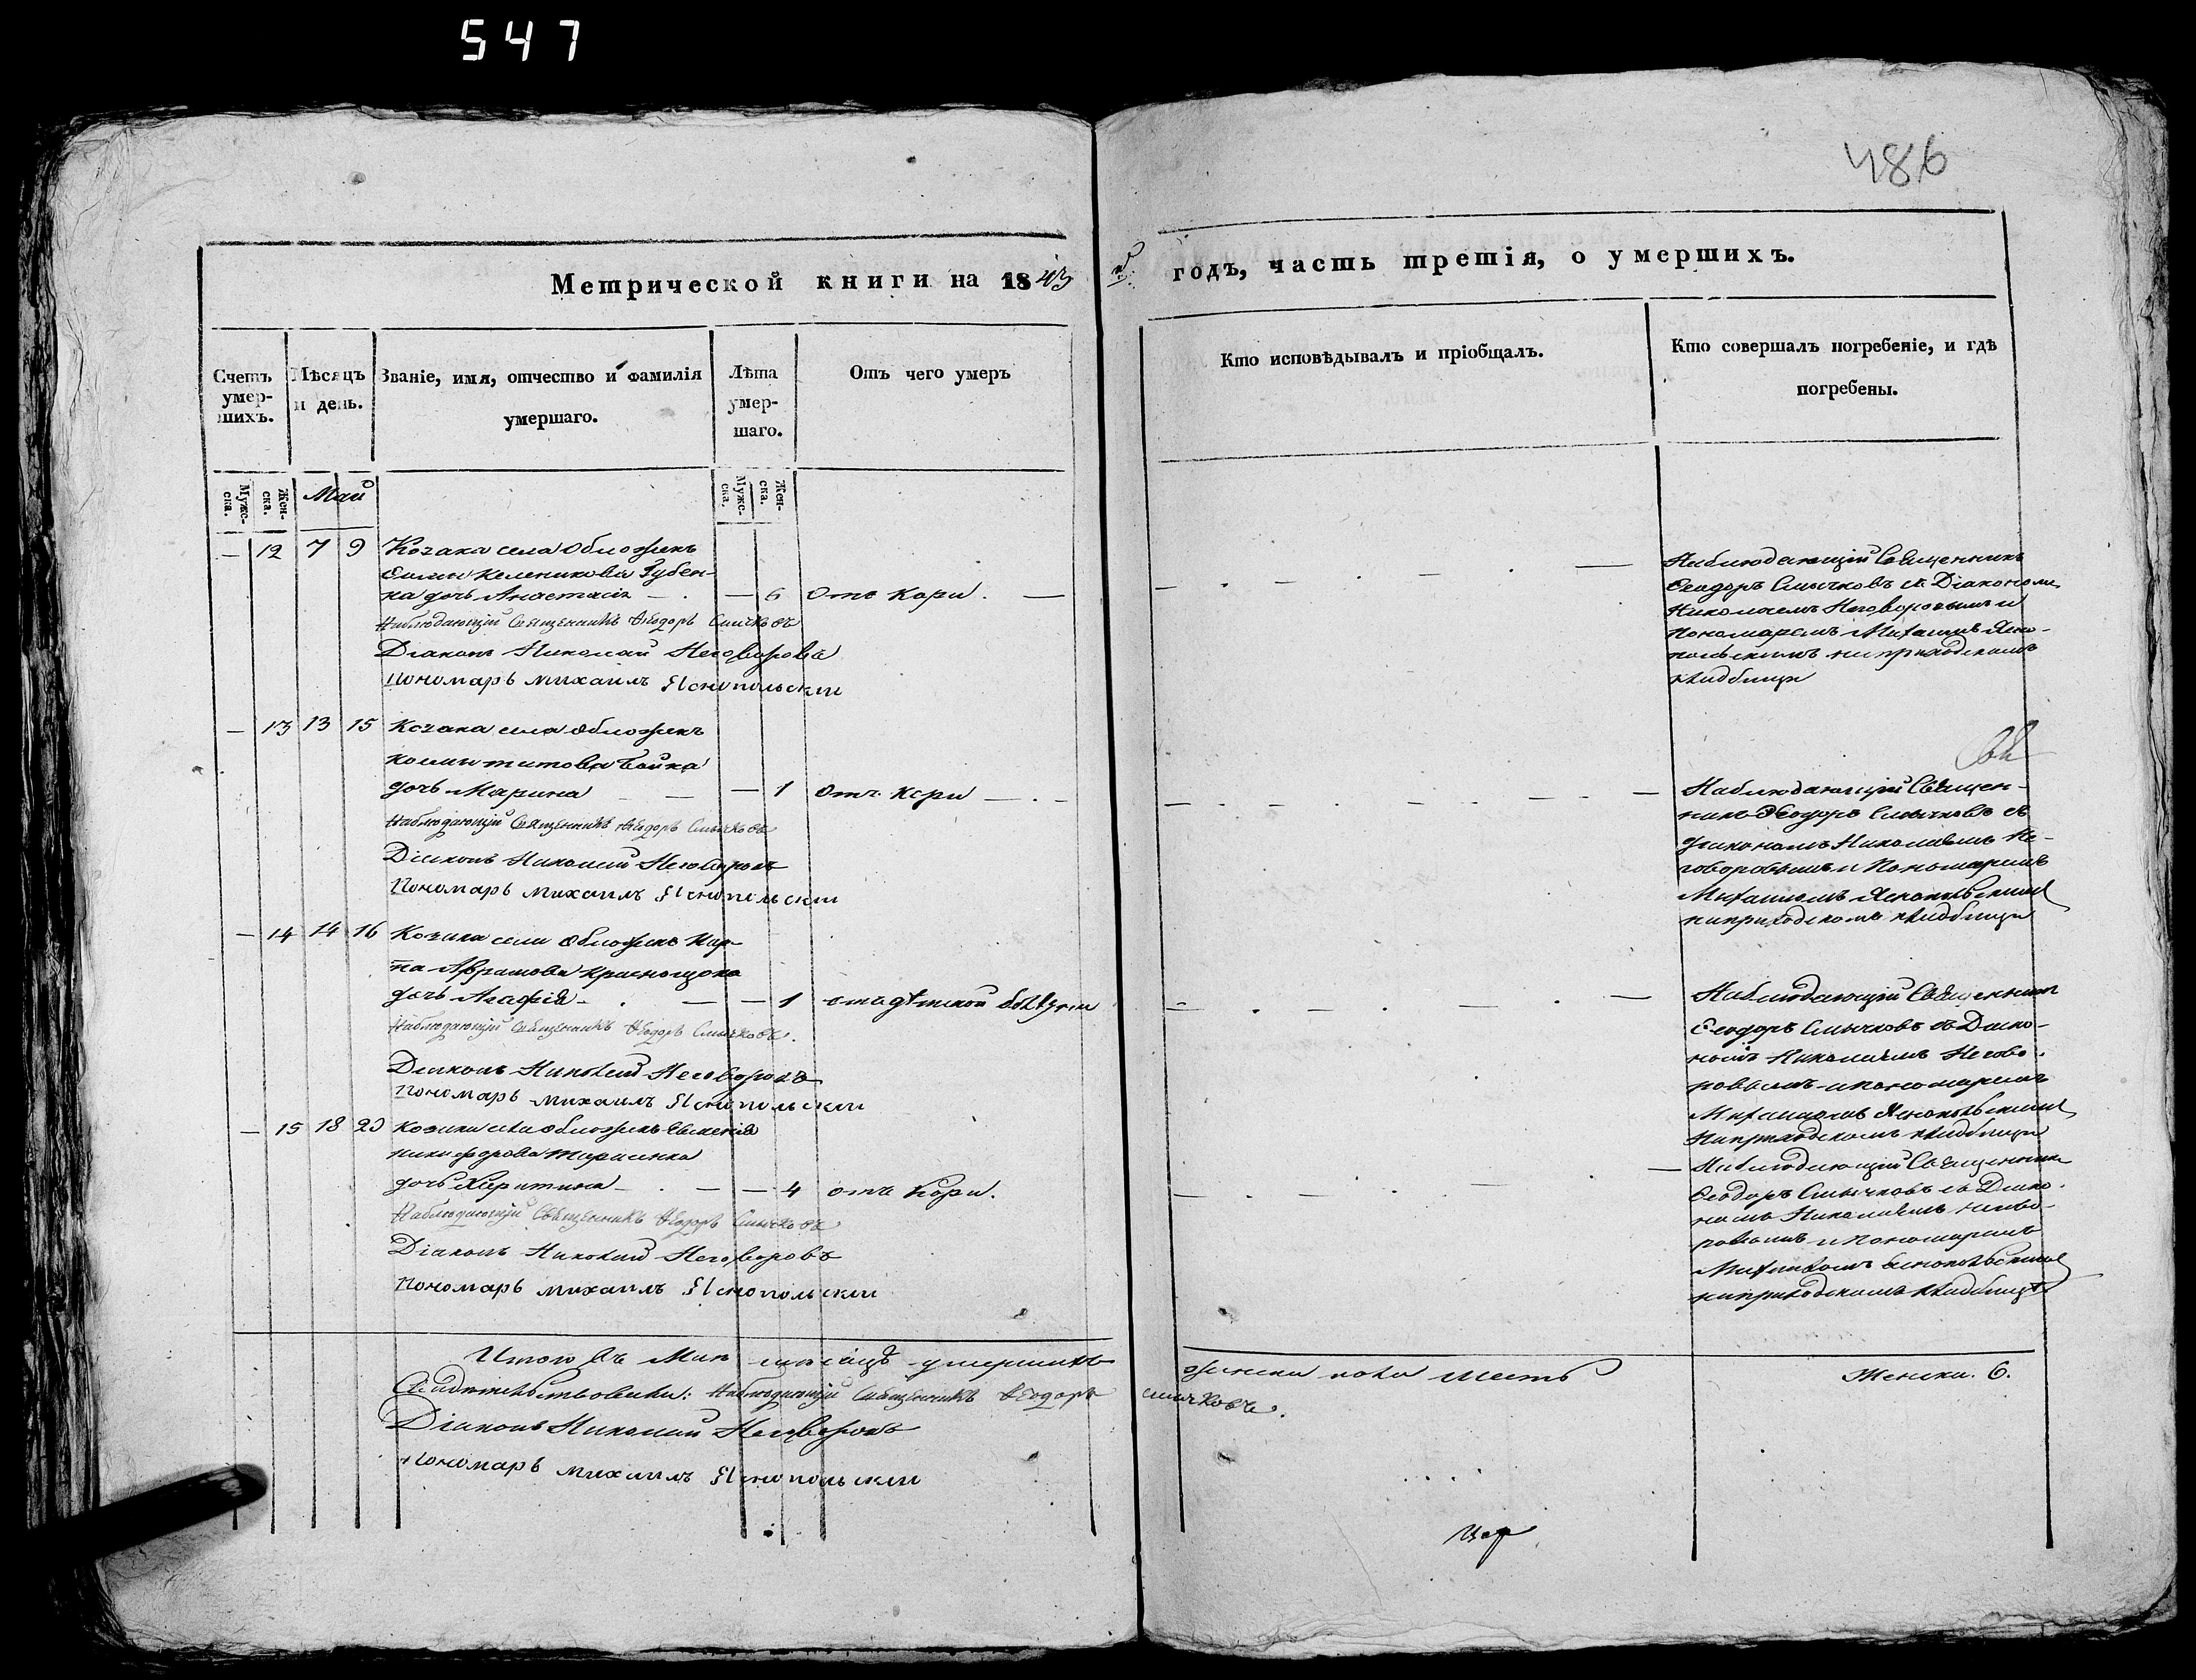 547
486
Метрической книги на 1843й годъ, часть третія, о умершихъ.
Счетъ умер-шихъ.
Мѣсяцъ и день.
Званіе, имя, отчество и фамилія умершаго.
Лѣта умер-шаго.
Отъ чего умеръ
Кто исповѣдывалъ и пріобщалъ.
Кто совершалъ погребеніе, и гдѣ погребены.
Мужс-ска.
Жен-ска.
Май
Мужс-ска.
Жен-ска.
— 12 7 9 Козака села Обложекъ
Губен-
ка дочь Анастасія — 6 Отъ Кори.
Наблюдающій Священникъ Ѳеодоръ Смычковъ
Діаконъ Николай Неговоровъ
Пономарь Михаилъ Яснопольскій
Наблюдающій Священникъ
Ѳеодоръ Смычковъ съ Діакономъ
Николаемъ Неговоровымъ и
пономаремъ Михаиломъ Ясно-
польскимъ на приходскомъ
кладбищи
— 13 13 15 Козака села Обложекъ
титова Бойка
дочь Марина — 1 Отъ Кори
Наблюдающій Священникъ Ѳеодоръ Смычковъ
Діаконъ Николай Неговоровъ
Пономарь Михаилъ Яснопольскій
Наблюдающій Священ-
никъ Ѳеодоръ Смычковъ съ
діакономъ Николаемъ Не-
говоровымъ и Пономаремъ
Михаиломъ Яснопольскимъ
на приходскомъ кладбищи
— 14 14 16 Козака села Обложекъ Кар-
па Аврамова Краснощока
дочь Агафія — 1 отъ дѣтской болѣзни
Наблюдающій Священникъ Ѳеодоръ Смычковъ.
Діаконъ Николай Неговоровъ
Пономарь Михаилъ Яснопольскій
Наблюдающій Священникъ
Ѳеодоръ Смычковъ съ Діако-
номъ Николаемъ Негово-
ровымъ и пономаремъ
Михаиломъ Яснопольскимъ
на приходскомъ кладбищи
— 15 18 20 Козака села Обложекъ Евменія
никифорова Тарасенка
дочь Харитина — 4 отъ Кори.
Наблюдающій Священникъ Ѳеодоръ Смычковъ
Діаконъ Николай Неговоровъ
Пономарь Михаилъ Яснопольскій
Наблюдающій Священникъ
Ѳеодоръ Смычковъ съ Діако-
номъ Николаемъ Негово-
ровымъ и Пономаремъ
Михаиломъ Яснопольскимъ
на приходскомъ кладбищѣ
Итого въ Маи мѣсяцѣ умершихъ женска пола шесть Женска. 6.
Свидѣтельствовали: Наблюдающій Священникъ Ѳеодоръ Смычковъ.
Діаконъ Николай Неговоровъ
Пономарь Михаилъ Яснопольскій